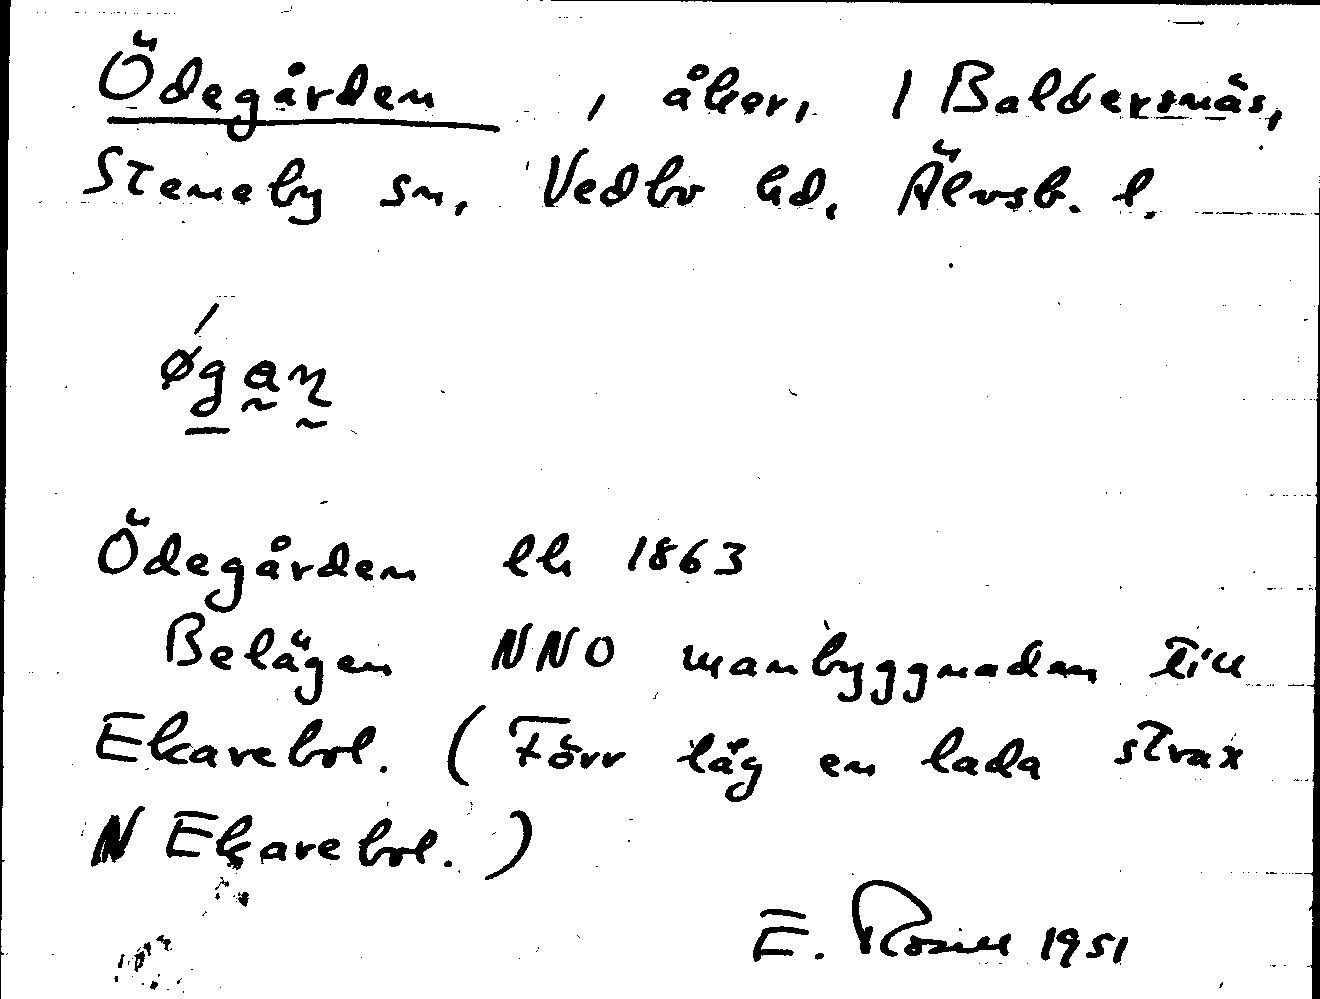 Ödegården, åker, 1 Baldersnäs,
Steneby sn, Vedbo hd, Älvsb. l.
øgan
Ödegården lh 1863
Belägen NNO manbyggnaden till
Ekarebol. (Förr låg en lada strax
N Ekarebol.)
E. 1951